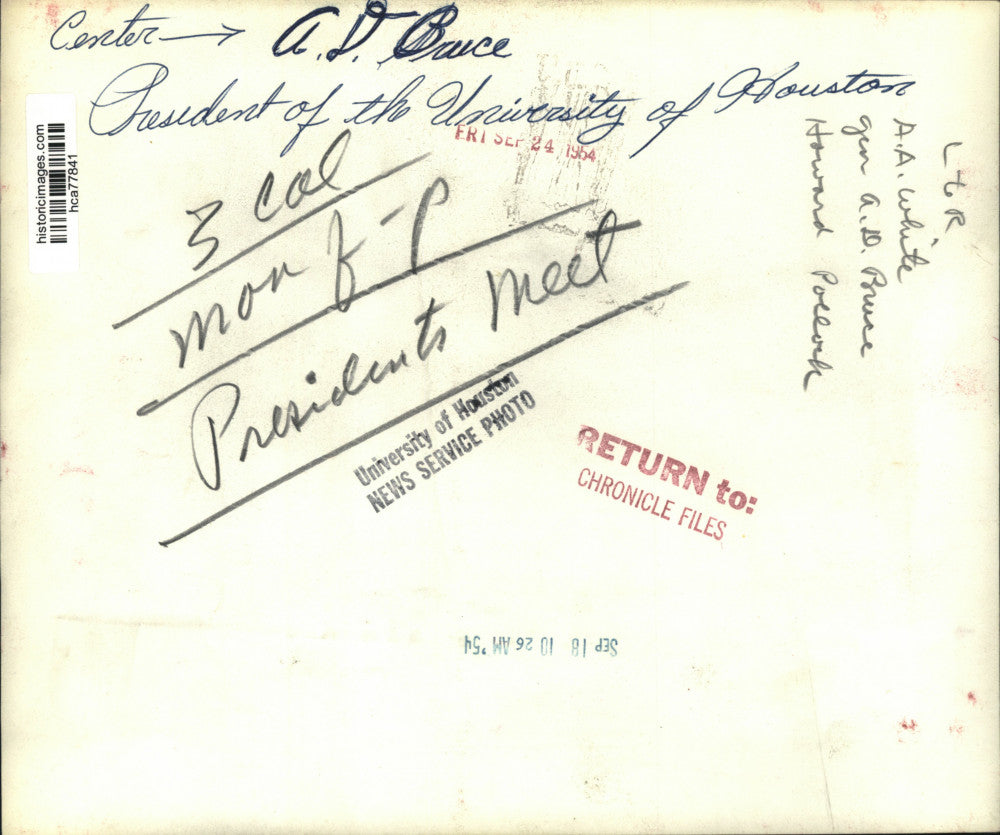 Center → A. D. Bruce
President of the University of Houston
FRI SEP 24 1954
historicimages.com
hca77841
L to R
A.A. White
gen A.D. Bruce
Howard Pollock
3 col
mon f-p
Presidents Meet
University of Houston
NEWS SERVICE PHOTO
RETURN to:
CHRONICLE FILES
SEP 18 10 26 AM '54